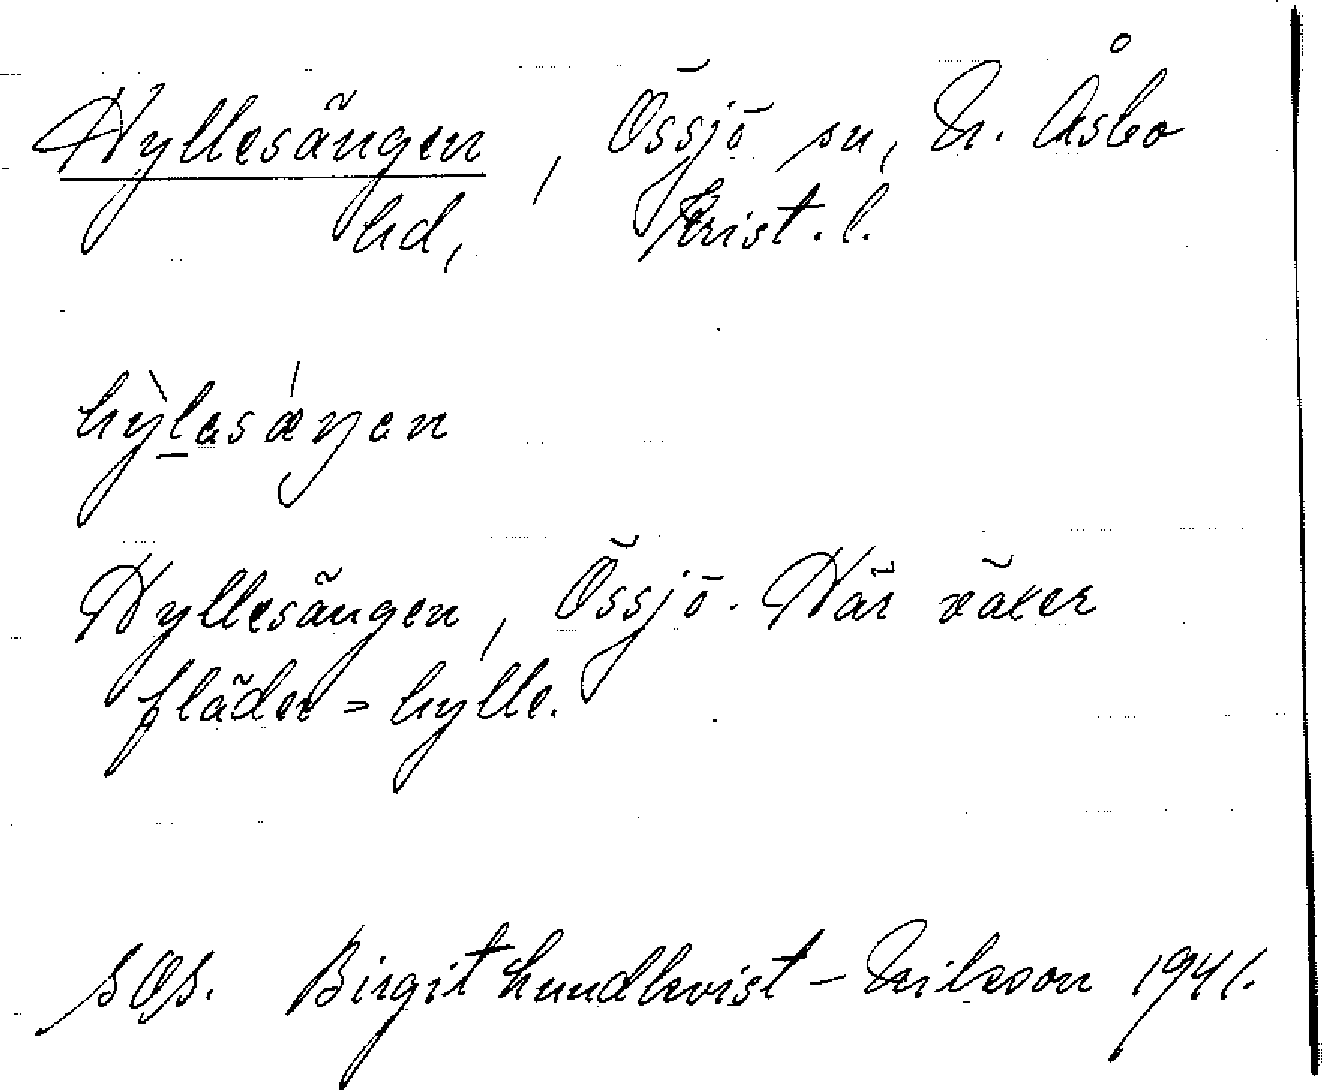 Hyllesängen, Össjö sn, N. Åsbo
hd, Krist. l.
hỳlasáŋan
Hyllesängen, Össjö. Här växer
fläder = hylle.
SOS. Birgit Lundkvist - Erikson 1941.